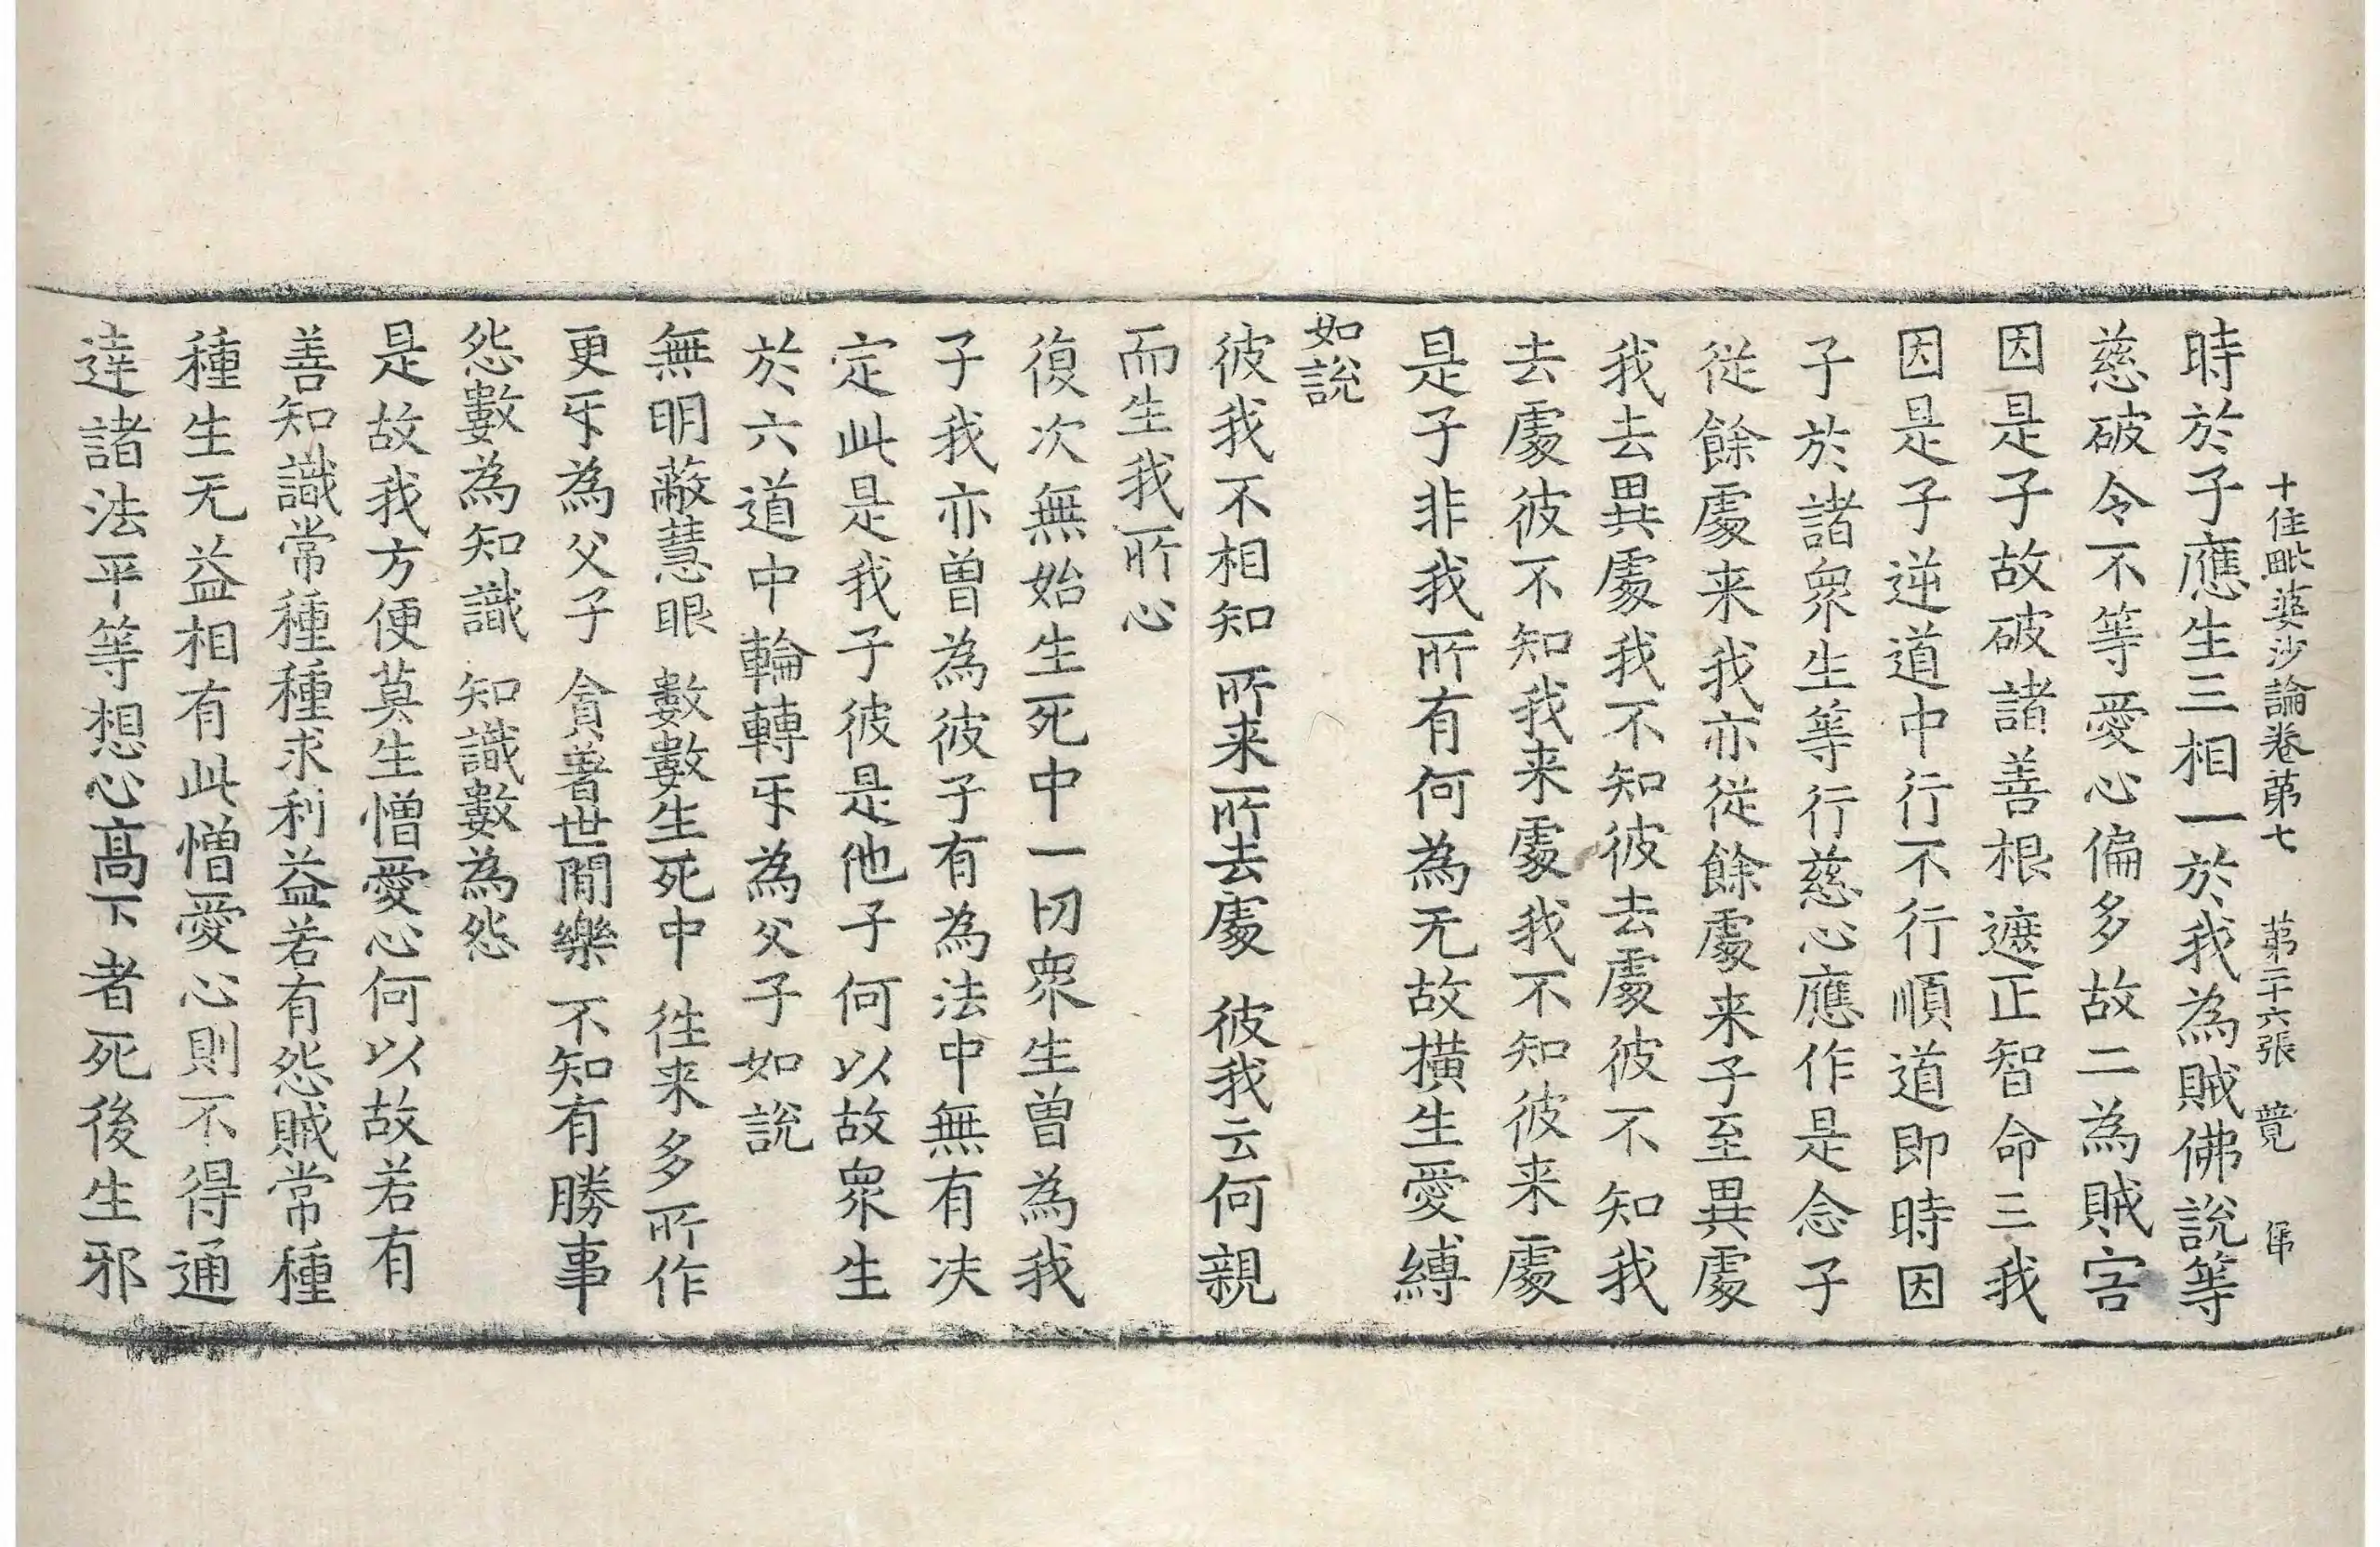 十住毗婆沙論卷第七 第二十六張 覽
時於子應生三相一於我為賊佛說等
慈破令不等愛心偏多故二為賊害
因是子故破諸善根遮正智命三我
因是子逆道中行不行順道即時因
子於諸衆生等行慈心應作是念子
從餘處来我亦從餘處来子至異處
我去異處我不知彼去處彼不知我
去處彼不知我来處我不知彼来處
是子非我所有何為无故橫生愛縛
如說
彼我不相知 所来所去處 彼我云何親
而生我所心
復次無始生死中一切衆生曽為我
子我亦曽為彼子有為法中無有决
定此是我子彼是他子何以故衆生
於六道中輪轉㸦為父子如說
無明蔽慧眼 數數生死中 往来多所作
更㸦為父子 貪著世間樂 不知有勝事
怨數為知識 知識數為怨
是故我方便莫生憎愛心何以故若有
善知識常種種求利益若有怨賊常種
種生无益相有此憎愛心則不得通
達諸法平等想心高下者死後生邪